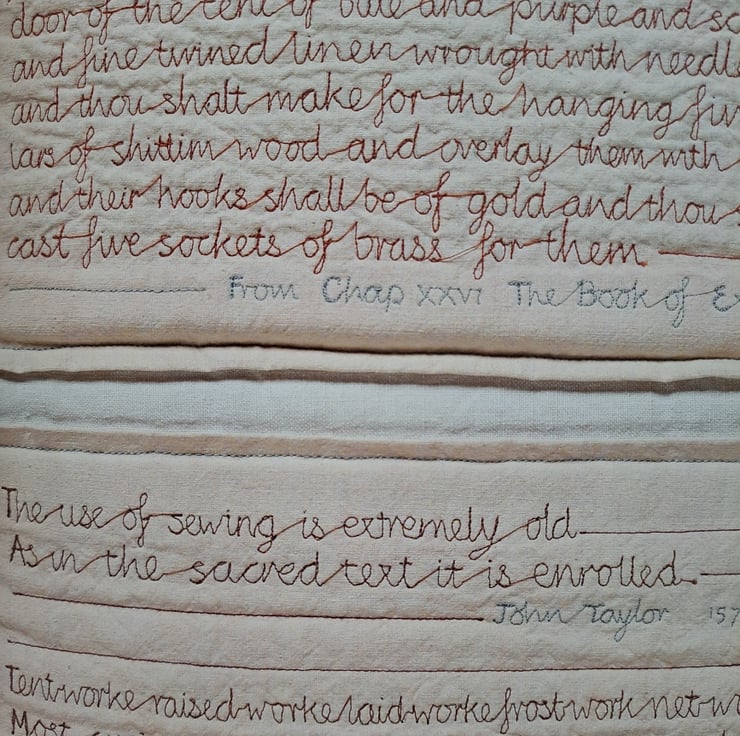 door of the tent of blue and purple and sc
and fine twined linen wrought with needle
and thou shalt make for the hanging fiv
lars of shittim wood and overlay them with
and their hooks shall be of gold and thou s
cast five sockets of brass for them
From Chap xxvi The Book of Ex
The use of sewing is extremely old
As in the sacred text it is enrolled.
John Taylor 157
Tentworke raised worke laid worke frost work net w
Most